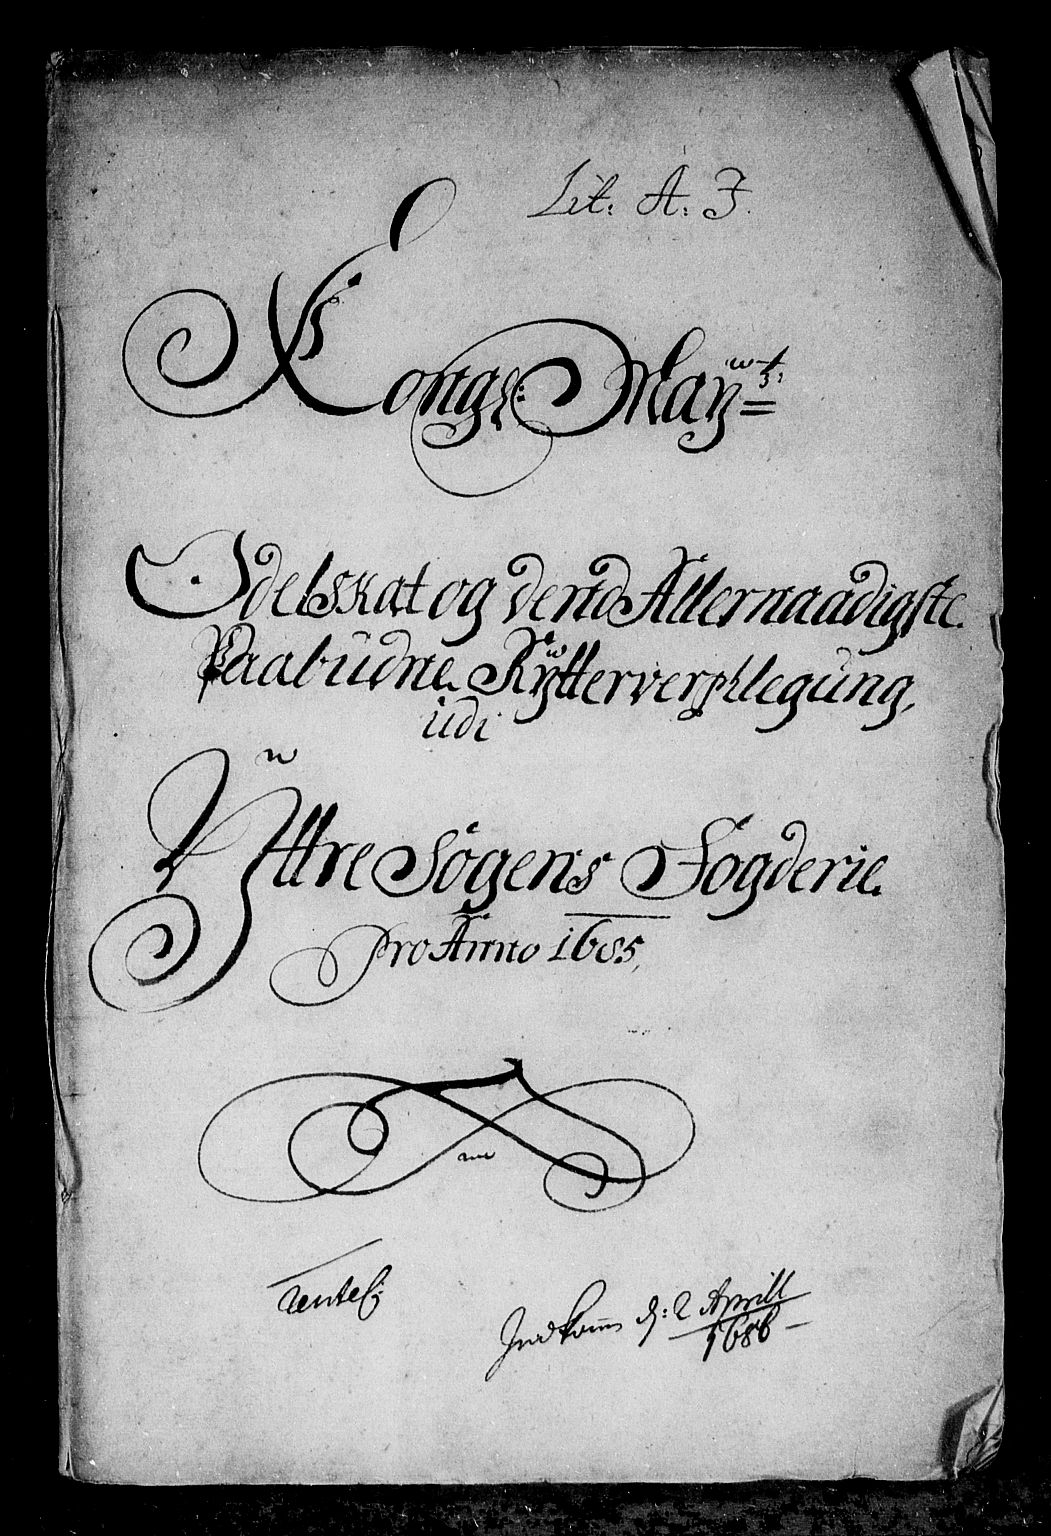 Lit: A: J.
Kongl: Maÿ:tz:
Odelskat og dend Allernaadigste
Paabudne Rÿtterverpflegung,
udi
Ÿttre Sogens Fogderie.
Pro Anno 1685,
Indkom d: 2 Aprill
1686